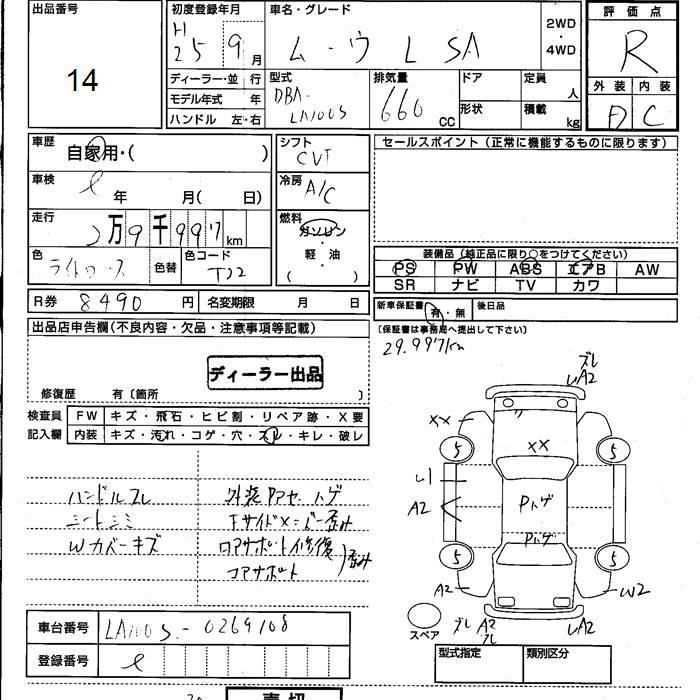 出品番号
14
初度登録年月
H
25 9月
車名・グレード
ム・ウ L SA
2WD
・
4WD
評価点
R
外装 内装
D C
ディーラー・並 行
モデル年式 年
ハンドル 左・右
型式
DBA-
LA100S
排気量
660 CC
ドア
形状
定員
人
積載
kg
車歴
自家用・( )
車検
年 月( 日)
走行
2万9千997km
色
色替
色コード
T22
シフト
CVT
冷房
A/C
燃料
ガソリン
・
軽油
( )
セールスポイント(正常に機能するものに限ります)
装備品(純正品に限り○をつけてください)
PS PW ABS エアB AW
SR ナビ TV カワ
R券 8490 円
名変期限 月 日
新車保証書 有・無
後日品
(保証書は事務局へ提出して下さい)
29.997km
出品店申告欄(不良内容・欠品・注意事項等記載)
ディーラー出品
修復歴 有〔箇所 〕
検査員
記入欄
FW キズ・飛石・ヒビ割・リペア跡・X要
内装 キズ・汚れ・コゲ・穴・スレ・キレ・破レ
ハンドルスレ
シートシミ
Wカバーキズ
外装Pアセ、トゲ
コアサポート修復
コアサポート
歪み
ズレ
A2
XX
XX
5
5
A2
Pトゲ
Pトゲ
5
5
A2
W2
ズレ A2
スペア
車台番号 LA100S-0269108
登録番号
型式指定 類別区分
売切